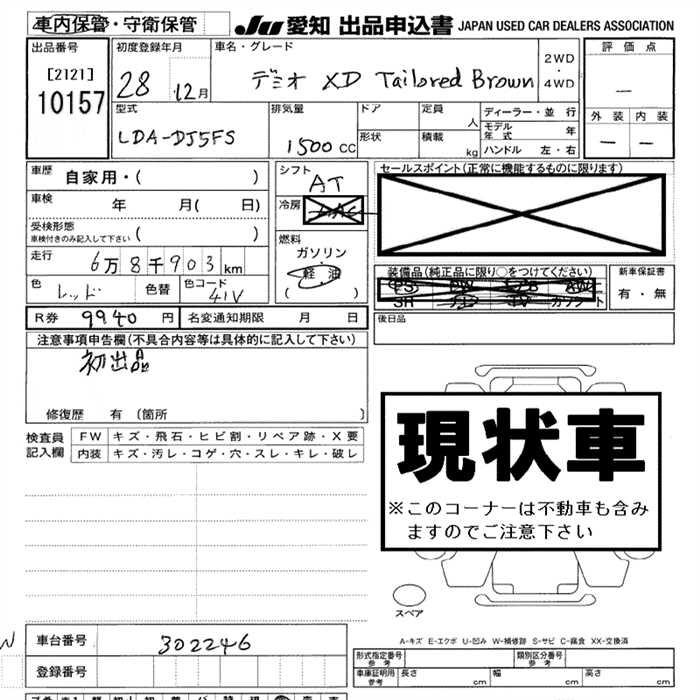 車内保管・守衛保管
JU 愛知 出品申込書 JAPAN USED CAR DEALERS ASSOCIATION
出品番号 初度登録年月 車名・グレード 評価点
[2121] 28 12月 デミオ XD Tailored Brown 2WD・4WD
10157 外装 内装
型式 排気量 ドア 定員 人 ディーラー・並行
LDA-DJ5FS 1500 cc 形状 積載 kg モデル年式 年
ハンドル 左・右
車歴 自家用・( ) シフト AT セールスポイント(正常に機能するものに限ります)
車検 年 月( 日) 冷房
受検形態 ( )
車検付きのみ記入して下さい
燃料 ガソリン・軽油 ( )
走行 6万8千903km
装備品(純正品に限り○をつけてください) 新車保証書
PS PW AW 有・無
SR TV カワシート
色 レッド 色替 色コード 41V
R券 9940円 名変通知期限 月 日 後日品
注意事項申告欄(不具合内容等は具体的に記入して下さい)
初出品
修復歴 有 (箇所 )
検査員記入欄 FW キズ・飛石・ヒビ割・リペア跡・X要
内装 キズ・汚レ・コゲ・穴・スレ・キレ・破レ
現状車
※このコーナーは不動車も含み
ますのでご注意下さい
スペア
A-キズ E-エクボ U-凹み W-補修跡 S-サビ C-腐食 XX-交換済
車台番号 302246
形式指定番号 参考 類別区分番号 参考
登録番号 車庫証明用 参考 長さ cm 幅 cm 高さ cm